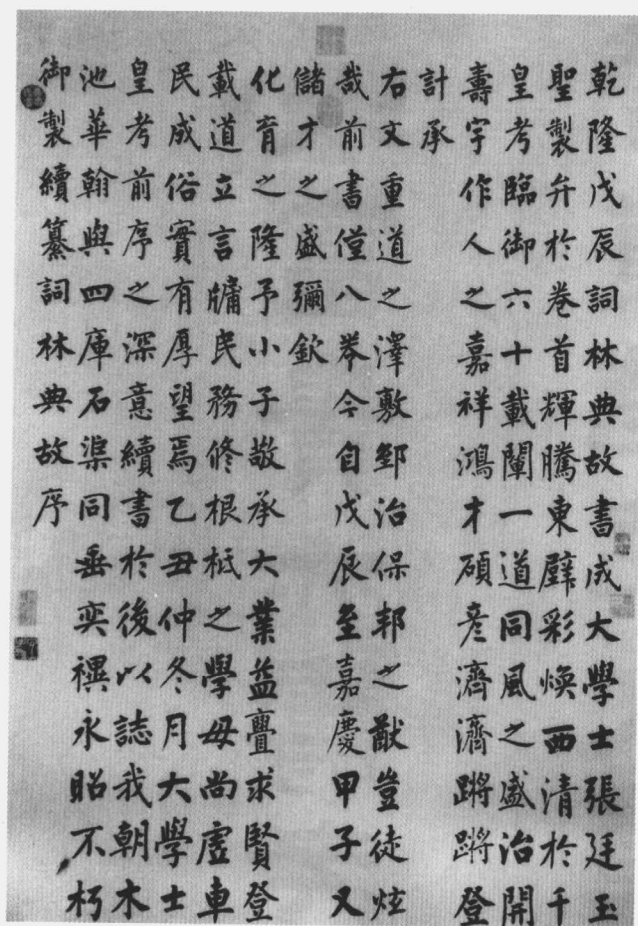 乾隆戊辰詞林典故書成大學士張廷玉
聖製弁於卷首輝騰東壁彩煥西清於千
皇考臨御六十載闡一道同風之盛治開
壽宇作人之嘉祥鴻才碩彥濟濟蹌蹌登
計承
右文重道之澤敷郅治保邦之猷豈徒炫
哉前書僅八卷今自戊辰至嘉慶甲子又
儲才之盛彌欽
化育之隆予小子敬承大業益亹求賢登
載道立言牖民務修根柢之學毋尚虛車
民成俗實有厚望焉乙丑仲冬月大學士
皇考前序之深意續書於後以誌我朝木
池華翰與四庫石渠同垂奕禩永昭不朽
御製續纂詞林典故序